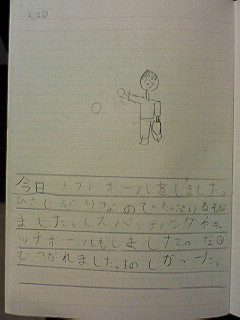 今日ソフトボールをしました。
ひさしぶりなので
ました。トスバッティングやキ
ッチボールもしました。
でつかれました。たのしかった。